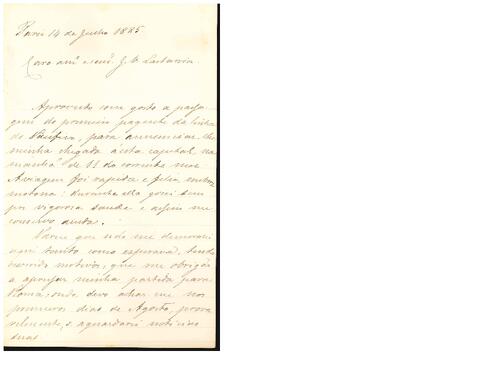 Paris 14 de Julho 1885.
Caro am.º e sen.r J. V. Lastarria
Aproveito com gosto a passa-
gem do primeiro paquete da linha
do Pacifico, para annunciar-lhe
minha chegada a esta capital na
manhã de 11 do corrente mez
A viagem foi rapida e feliz,
durante ella gozei sem-
pre vigorosa saude e assim me
conservo ainda.
Parece que não me demorarei
aqui tanto como esperava, tendo
occorrido motivos, que me obrigão
a apressar minha partida para
Roma; onde devo achar-me nos
primeiros dias de Agosto, prova-
velmente, e aguardarei noticias
suas